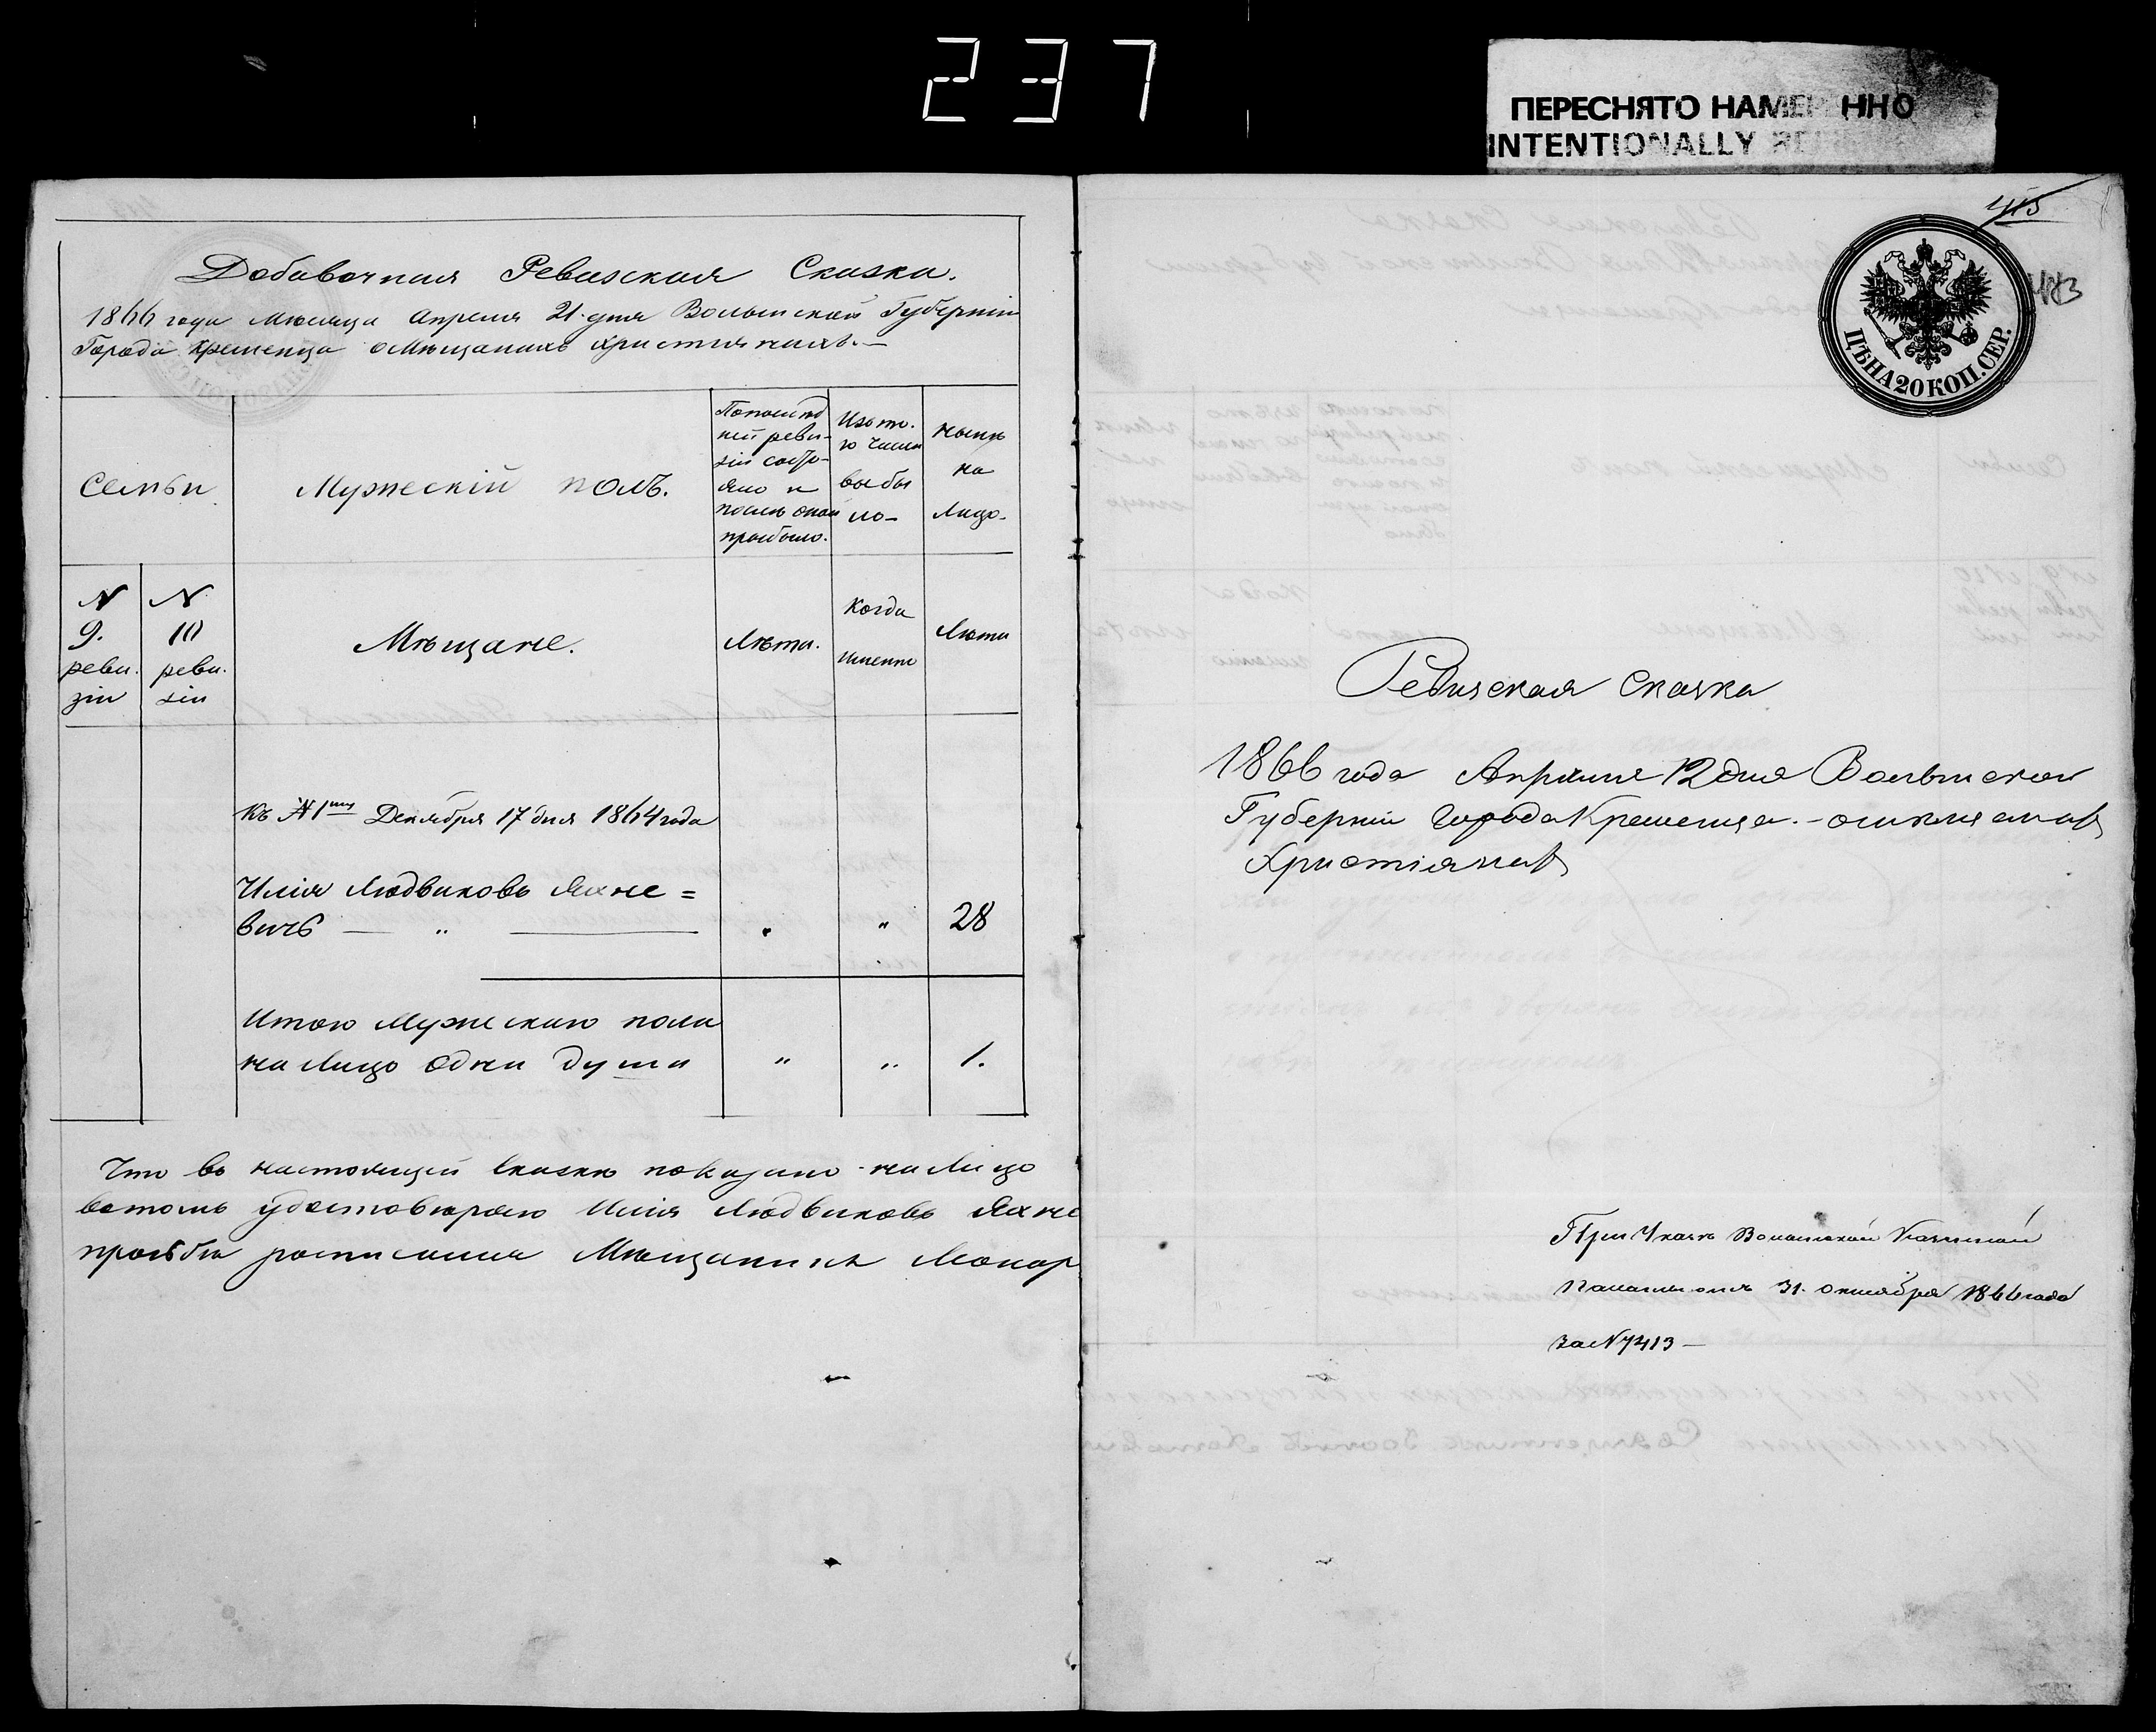 237
ПЕРЕСНЯТО НАМЕРЕННО
INTENTIONALLY
Добавочная Ревизская Сказка.
1866 года Мѣсяца Апреля 21 дня Волынской Губерніи
Города Кременца о Мѣщанахъ христіянахъ.—
Семьи
Мужескій полъ.
По послѣд
ней реви-
зіи состо-
яло и
послѣ оной
прибыло.
Изъ то-
го числа
выбы
ло-
Нынѣ
на
Лицо-
N
9.
реви.
зіи
N
10
реви.
зіи
Мѣщане.
Лѣта.
Когда
именно
Лѣта
Къ №1му Декабря 17 дня 1864 года
Илія Людвиковъ Яхне=
вичъ — " — " " 28
Итого Мужескаго пола
на Лицо одна душа " " 1.
Что въ настоящей сказкѣ показано на Лицо
вотомъ удостовѣряю Илія Людвиковъ Яхне
просьбы росписался Мѣщанинъ
415
473
ЦѢНА 20 КОП. СЕР.
Ревизская Сказка
1866 года Апрѣля 12 дня Волынской
Губерніи Города Кременца.- о мѣщанахъ
Христіянахъ
При Указѣ Волынской Казенной
Палаты отъ 31. октября 1866 года
за N 7413 —